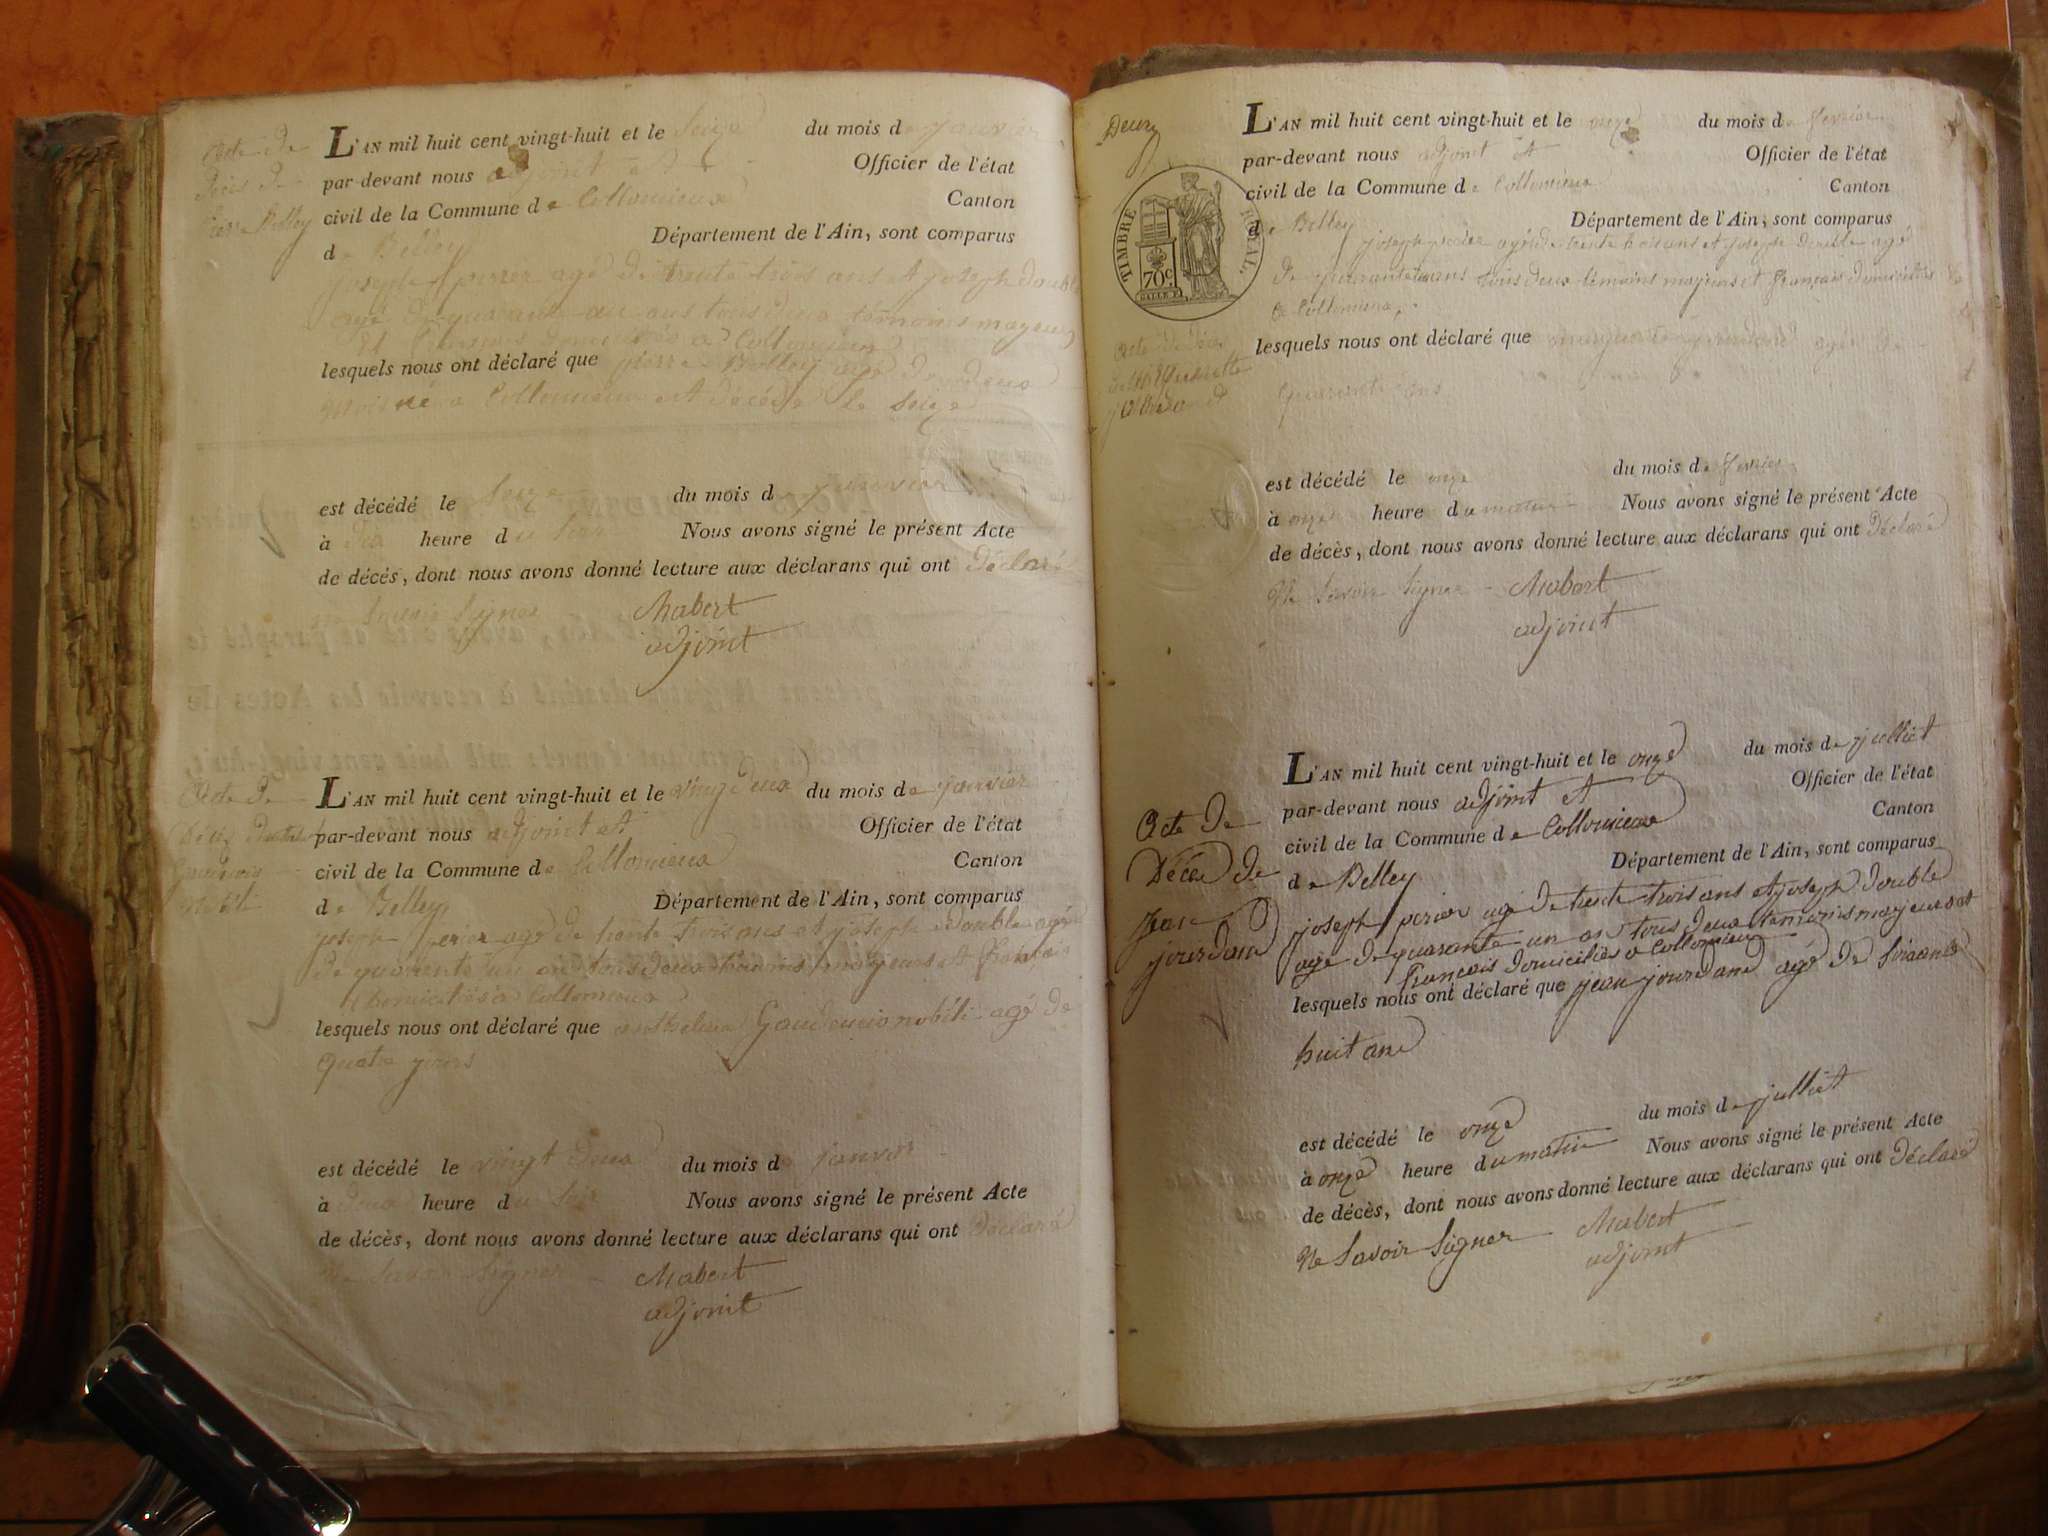 Acte de
Décès de
Pierre Belley
L'AN mil huit cent vingt-huit et le Seize du mois de janvier
par-devant nous adjoint et Officier de l'état
civil de la Commune de Collomieux Canton
de Belley Département de l'Ain, sont comparus
joseph perier agé de trente trois ans et joseph double
agé de quarante un ans tous deux témoins majeurs
et français domiciliés a Collomieux
lesquels nous ont déclaré que pierre Belley agé de deux
mois né a Collomieux est décédé le seize
est décédé le Seize du mois de janvier
à dix heure du soir Nous avons signé le présent Acte
de décés, dont nous avons donné lecture aux déclarans qui ont Déclaré
ne Savoir Signer Mabert
adjoint
Acte de
L'AN mil huit cent vingt-huit et le vingt deux du mois de janvier
par-devant nous adjoint et Officier de l'état
civil de la Commune de Collomieux Canton
de Belley Département de l'Ain, sont comparus
joseph perier agé de trente trois ans et joseph double agé
de quarente un an tous deux témoins majeurs et français
domiciliés a Collomieux
lesquels nous ont déclaré que anthelme Gaudencio nobili agé de
quatre jours
est décédé le vingt deux du mois de janvier
à deux heure du Soir Nous avons signé le présent Acte
de décès, dont nous avons donné lecture aux déclarans qui ont Déclaré
Ne Savoir Signer Mabert
adjoint
Deux
TIMBRE ROYAL.
70c
L'AN mil huit cent vingt-huit et le onze du mois de fevrier
par-devant nous adjoint et Officier de l'état
civil de la Commune de Collomieux Canton
de Belley Département de l'Ain, sont comparus
joseph perier agé de trente trois ans et joseph double agé
de quarante un ans tous deux témoins majeurs et français domiciliés
a Collomieux
Acte de décès
lesquels nous ont déclaré que agé de
quarante ans
est décédé le onze du mois de fevrier
à onze heure du matin Nous avons signé le présent Acte
de décès, dont nous avons donné lecture aux déclarans qui ont Déclaré
Ne Savoir Signer Mabert
adjoint
Acte De
Décès de
Jean
jourdand
L'AN mil huit cent vingt-huit et le onze du mois de julliet
par-devant nous adjoint et Officier de l'état
civil de la Commune de Collomieux Canton
de Belley Département de l'Ain, sont comparus
joseph perier agé de trente trois ans et joseph double
agé de quarante un an tous deux témoins majeurs et
français domiciliés a Collomieux
lesquels nous ont déclaré que jean jourdand agé de Soixante
huit ans
est décédé le onze du mois de julliet
à onze heure du matin Nous avons signé le présent Acte
de décès, dont nous avons donné lecture aux déclarans qui ont Déclaré
Ne Savoir Signer Mabert
adjoint